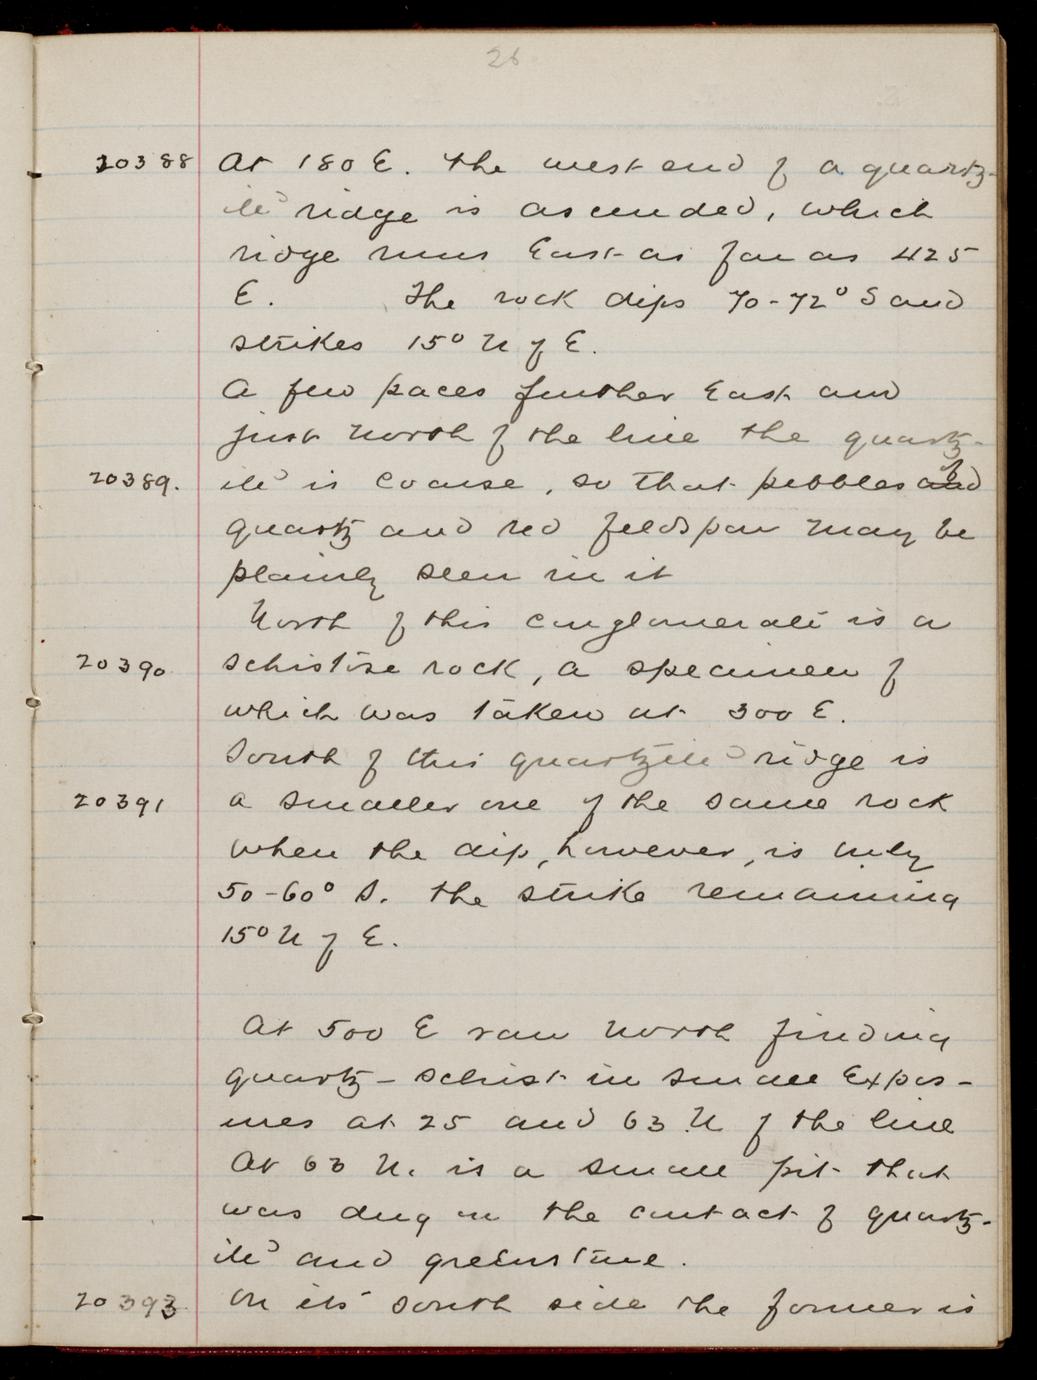 26
20388 At 180 E. the west end of a quartz-
ite ridge is ascended, which
ridge runs East as far as 425
E. The rock dips 70-72° S and
strikes 15° N of E.
A few paces further East and
just North of the line the quartz-
20389. ite is coarse, so that pebbles of
quartz and red feldspar may be
plainly seen in it
North of this conglomerate is a
20390 schistose rock, a specimen of
which was taken at 300 E.
South of this quartzite ridge is
20391 a smaller one of the same rock
when the dip, however, is only
50-60° S. the strike remaining
15° N of E.
At 500 E ran North finding
quartz-schist in small Expos-
ures at 25 and 63 N of the line
At 63 N. is a small pit that
was dug on the contact of quartz-
ite and greenstone.
20393 On its south side the former is